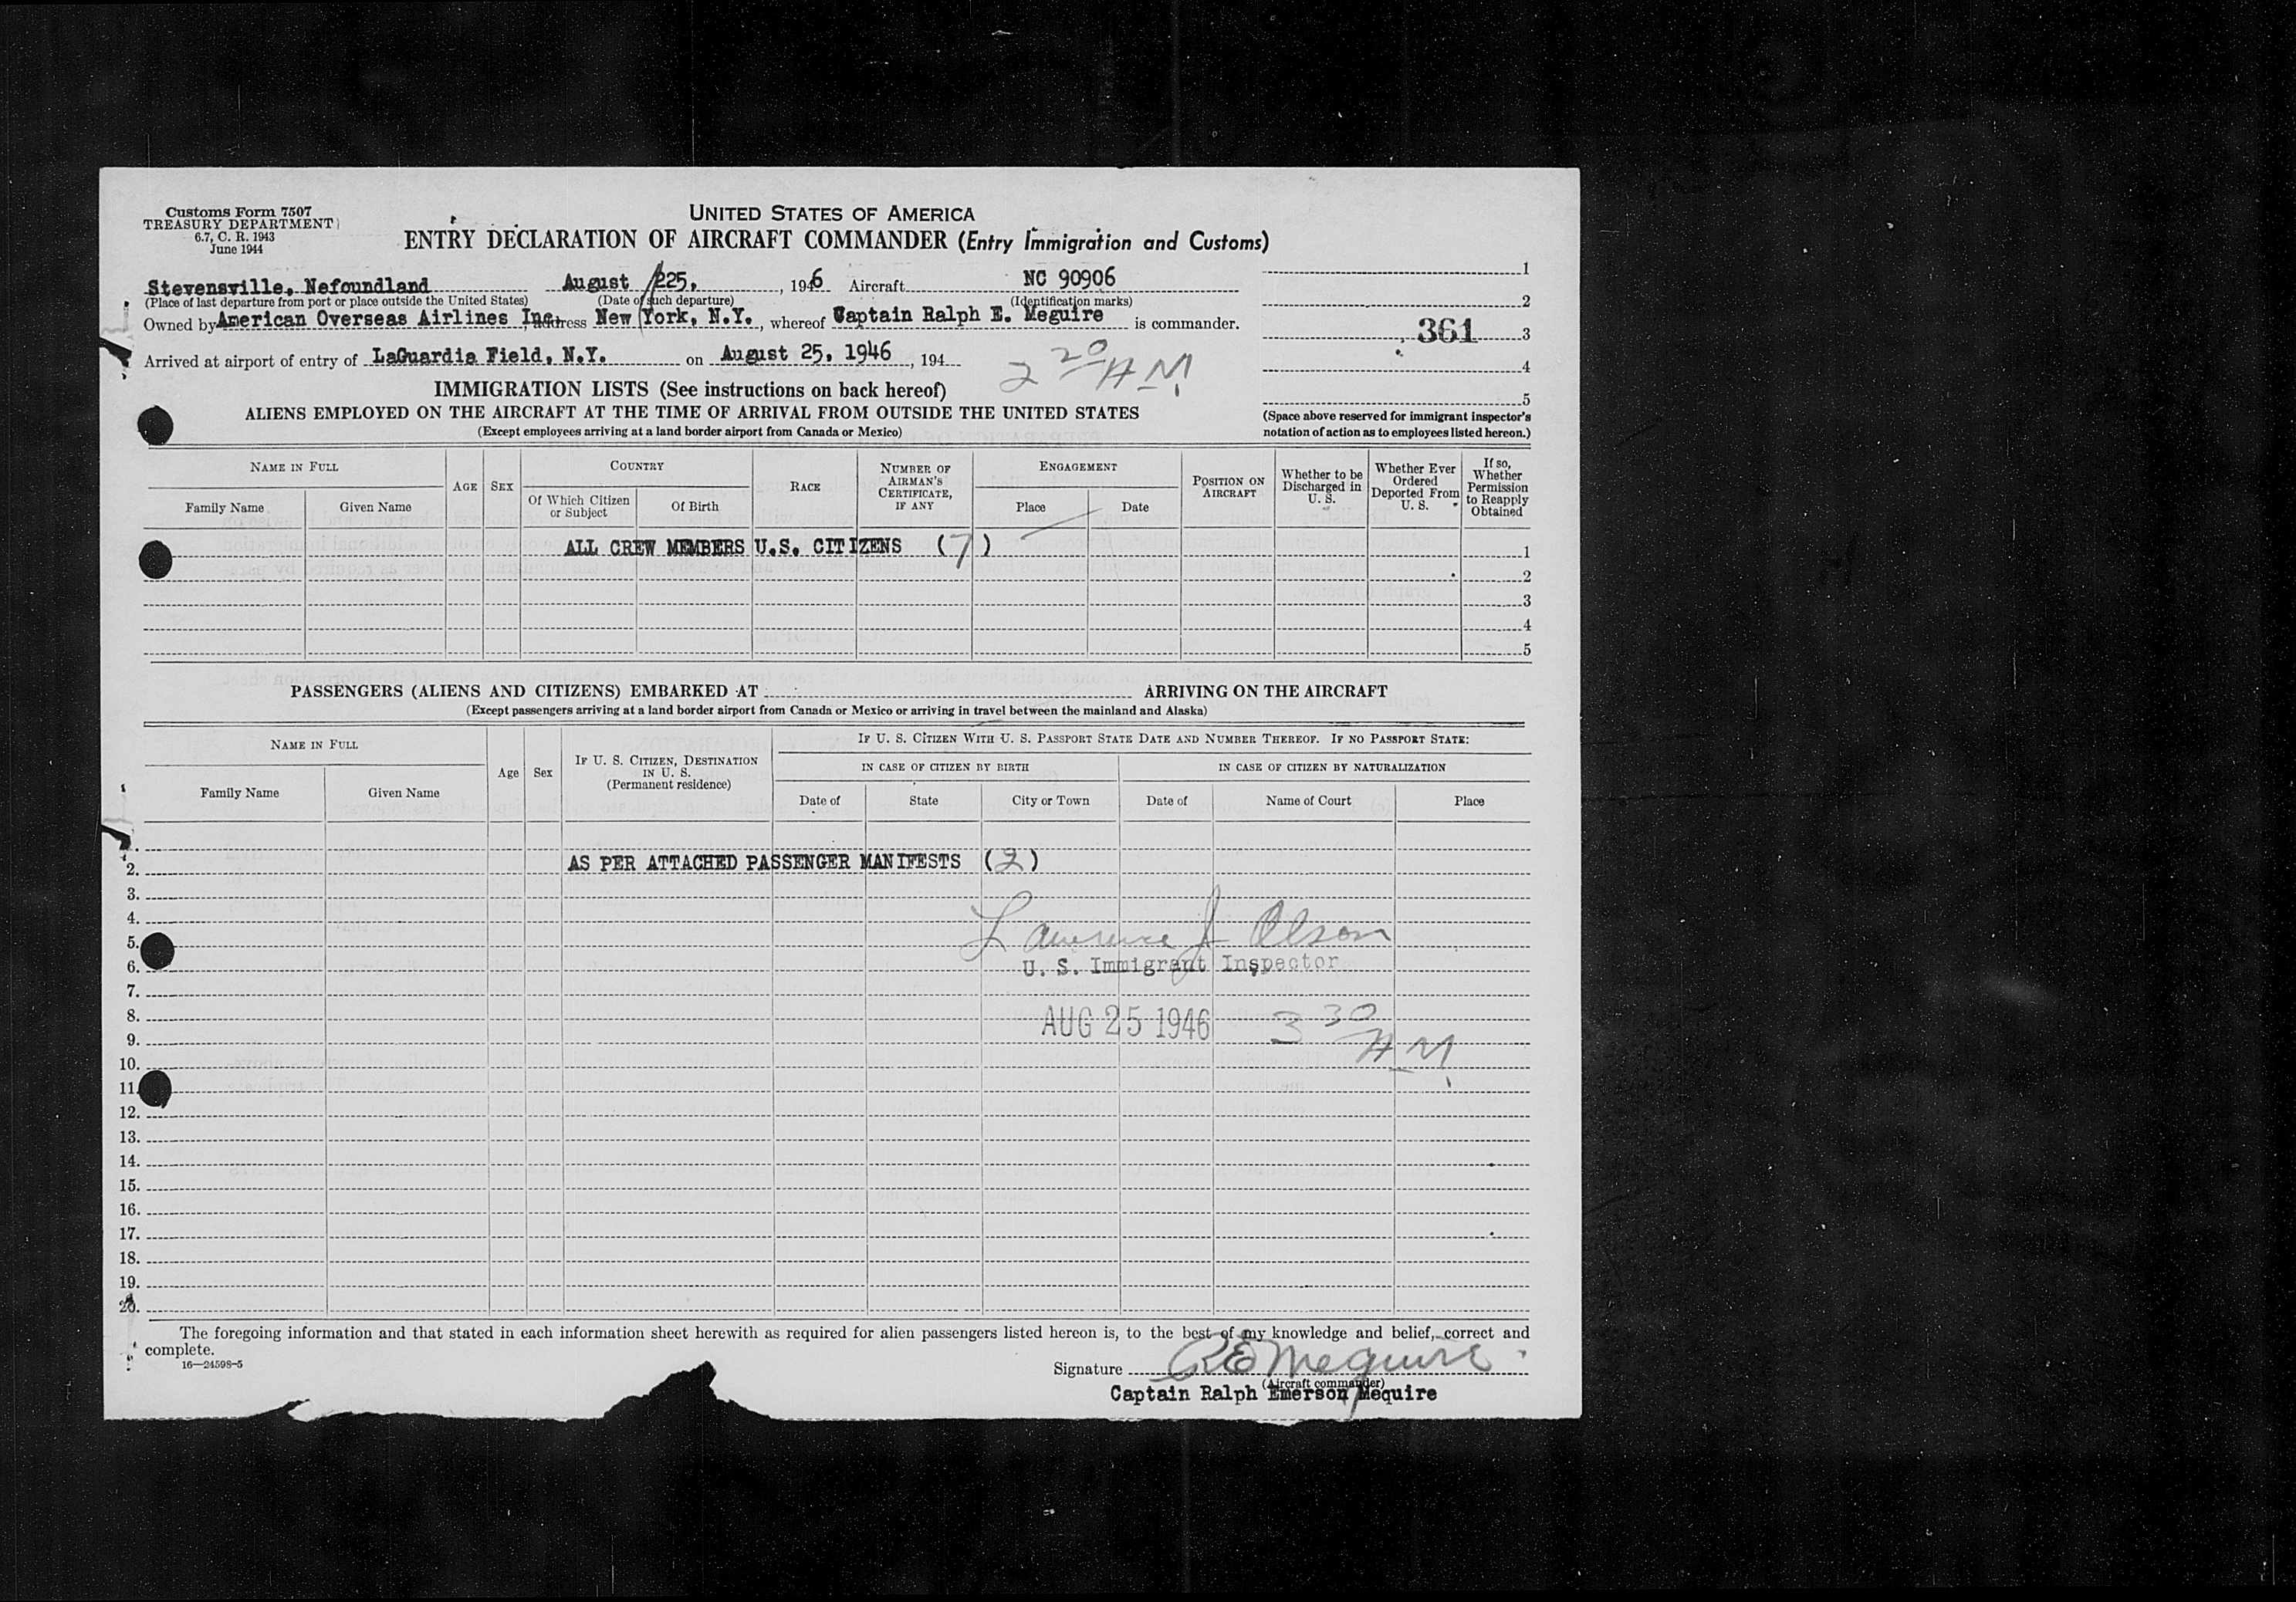 Customs Form 7507
TREASURY DEPARTMENT
6.7, C. R. 1943
June 1944
UNITED STATES OF AMERICA
ENTRY DECLARATION OF AIRCRAFT COMMANDER (Entry Immigration and Customs)
Stevensville, Nefoundland August 225, 1946 Aircraft NC 90906
(Place of last departure from port or place outside the United States) (Date of such departure) (Identification marks)
Owned by American Overseas Airlines Inc. Address New York, N.Y., whereof Captain Ralph E. Meguire is commander.
Arrived at airport of entry of LaGuardia Field, N.Y. on August 25, 1946, 194
2 20 AM
1
2
361 3
4
5
(Space above reserved for immigrant inspector's
notation of action as to employees listed hereon.)
IMMIGRATION LISTS (See instructions on back hereof)
ALIENS EMPLOYED ON THE AIRCRAFT AT THE TIME OF ARRIVAL FROM OUTSIDE THE UNITED STATES
(Except employees arriving at a land border airport from Canada or Mexico)
NAME IN FULL
Family Name Given Name
AGE SEX
COUNTRY
Of Which Citizen or Subject Of Birth
RACE
NUMBER OF AIRMAN'S CERTIFICATE, IF ANY
ENGAGEMENT
Place Date
POSITION ON AIRCRAFT
Whether to be Discharged in U. S.
Whether Ever Ordered Deported From U. S.
If so, Whether Permission to Reapply Obtained
ALL CREW MEMBERS U.S. CITIZENS (7) 1
2
3
4
5
PASSENGERS (ALIENS AND CITIZENS) EMBARKED AT ARRIVING ON THE AIRCRAFT
(Except passengers arriving at a land border airport from Canada or Mexico or arriving in travel between the mainland and Alaska)
NAME IN FULL
Family Name Given Name
Age Sex
IF U. S. CITIZEN, DESTINATION IN U. S.
(Permanent residence)
IF U. S. CITIZEN WITH U. S. PASSPORT STATE DATE AND NUMBER THEREOF. IF NO PASSPORT STATE:
IN CASE OF CITIZEN BY BIRTH IN CASE OF CITIZEN BY NATURALIZATION
Date of State City or Town Date of Name of Court Place
1.
2. AS PER ATTACHED PASSENGER MANIFESTS (2)
3.
4.
5. Lawrence J Olson
6. U. S. Immigrant Inspector
7.
8. AUG 25 1946 3 30 AM
9.
10.
11.
12.
13.
14.
15.
16.
17.
18.
19.
20.
The foregoing information and that stated in each information sheet herewith as required for alien passengers listed hereon is, to the best of my knowledge and belief, correct and
complete.
16—24598-5
Signature R E Meguire
(Aircraft commander)
Captain Ralph Emerson Mequire